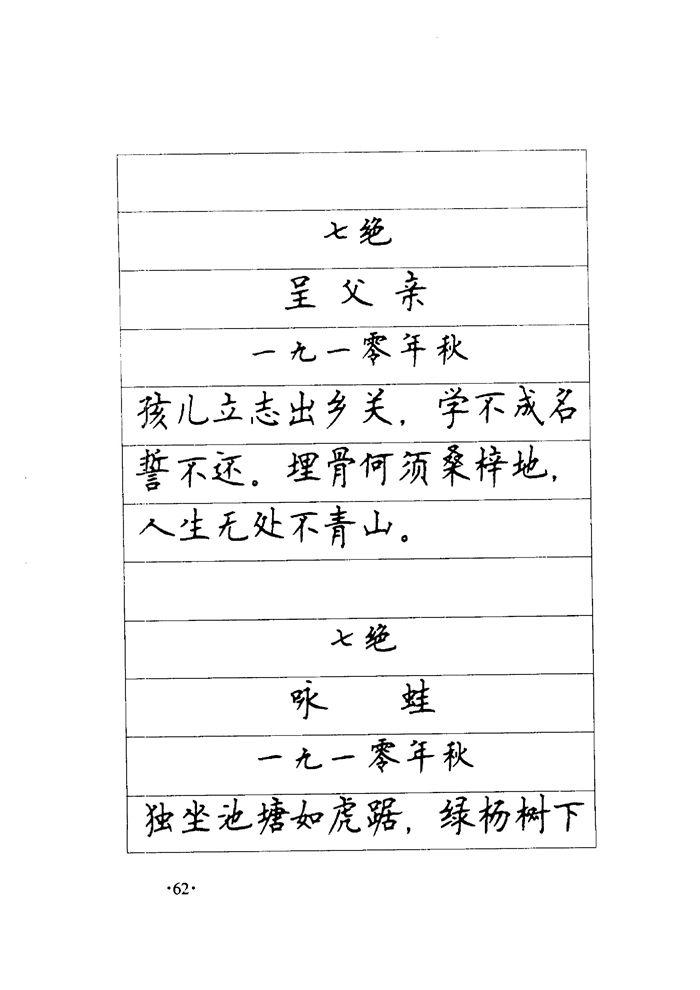 七绝
呈父亲
一九一零年秋
孩儿立志出乡关，学不成名
誓不还。埋骨何须桑梓地，
人生无处不青山。
七绝
咏 蛙
一九一零年秋
独坐池塘如虎踞，绿杨树下
·62·